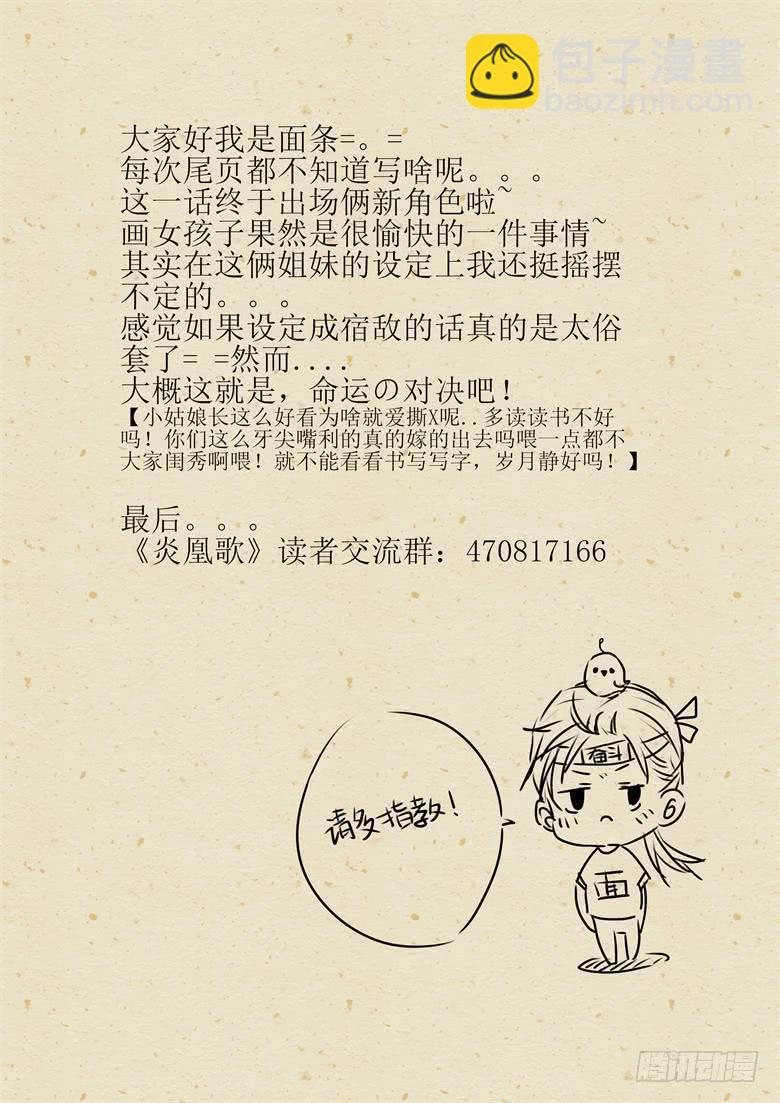 包子漫畫
baozimh.com
大家好我是面条=。=
每次尾页都不知道写啥呢。。。
这一话终于出场俩新角色啦~
画女孩子果然是很愉快的一件事情~
其实在这俩姐妹的设定上我还挺摇摆
不定的。。。
感觉如果设定成宿敌的话真的是太俗
套了= =然而....
大概这就是，命运の对决吧！
【小姑娘长这么好看为啥就爱撕X呢..多读读书不好
吗！你们这么牙尖嘴利的真的嫁的出去吗喂一点都不
大家闺秀啊喂！就不能看看书写写字，岁月静好吗！】
最后。。。
《炎凰歌》读者交流群：470817166
奋斗
请多指教！
面
腾讯动漫